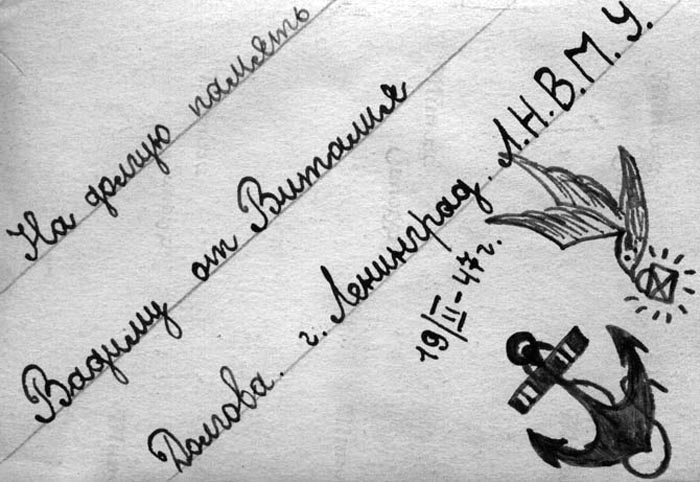 На долгую память
Вадиму от Виталия
Долгова. г. Ленинград. Л.Н.В.М.У.
19/II-47г.